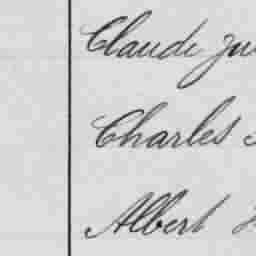 Claude
Charles
Albert